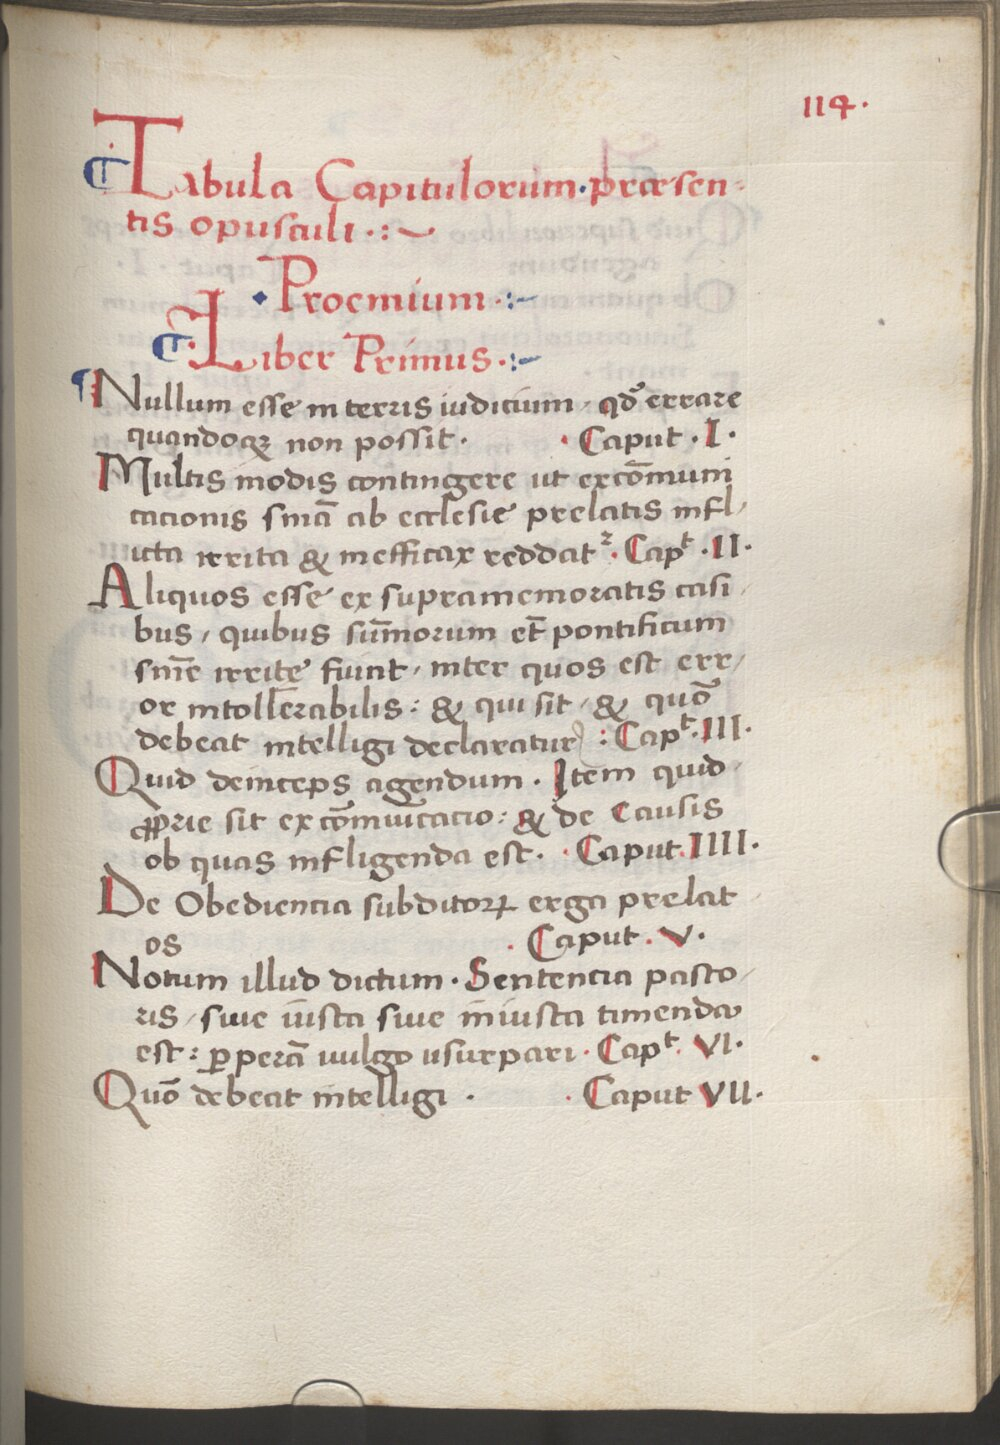 114.
Tabula Capitulorum præsen-
tis opusculi .:~
Proemium .:~
Liber Primus .:~
Nullum esse in terris iudicium, qđ errare
quandoqꝫ non possit. Caput . I .
Multis modis contingere ut excōmuni
cationis sniā ab ecclesie prelatis infl,
icta irrita & inefficax reddatᷣ . Capᵗ . II .
Aliquos esse ex supramemoratis casi,
bus, quibus sūmorum et̄ pontificum
snīe irrite fiunt, inter quos est err,
or intoll̄erabilis: & qui sit, & quō
debeat intelligi declaratur) : Capᵗ . III .
Quid deinceps agendum. Item quid,
ꝓprie sit excōmuīcacio: & de Causis
ob quas infligenda est. . Caput . IIII .
De Obediencia subditoꝝ erga prelat
os . Caput . V .
Notum illud dictum. Sentencia pasto,
ris, siue iusta siue iniusta timenda
est: ꝑperā uulgo usurpari . Capᵗ . VI .
Quō debeat intelligi . . Caput VII .